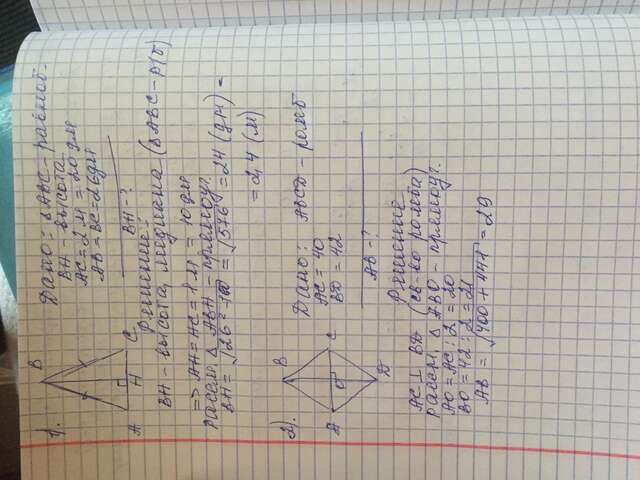 1). Дано: ΔABC - равноб.
BH - высота
AC = 2 м = 20 дм
AB = BC = 26 дм
BH - ?
B
A
H
C
Решение:
BH - высота, медиана (ΔABC - р/б)
=> AH = HC = 1 м = 10 дм
Рассм. Δ ABH - прямоуг.
= √576 = 24 (дм) =
= 2,4 (м)
2). Дано: ABCD - ромб
AC = 40
BD = 42
AB - ?
B
A
O
C
D
Решение
AC ⊥ BD (св-во ромба)
Рассм. Δ ABO - прямоуг.
AO = AC : 2 = 20
BO = 42 : 2 = 21
AB = √400 + 441 = 29